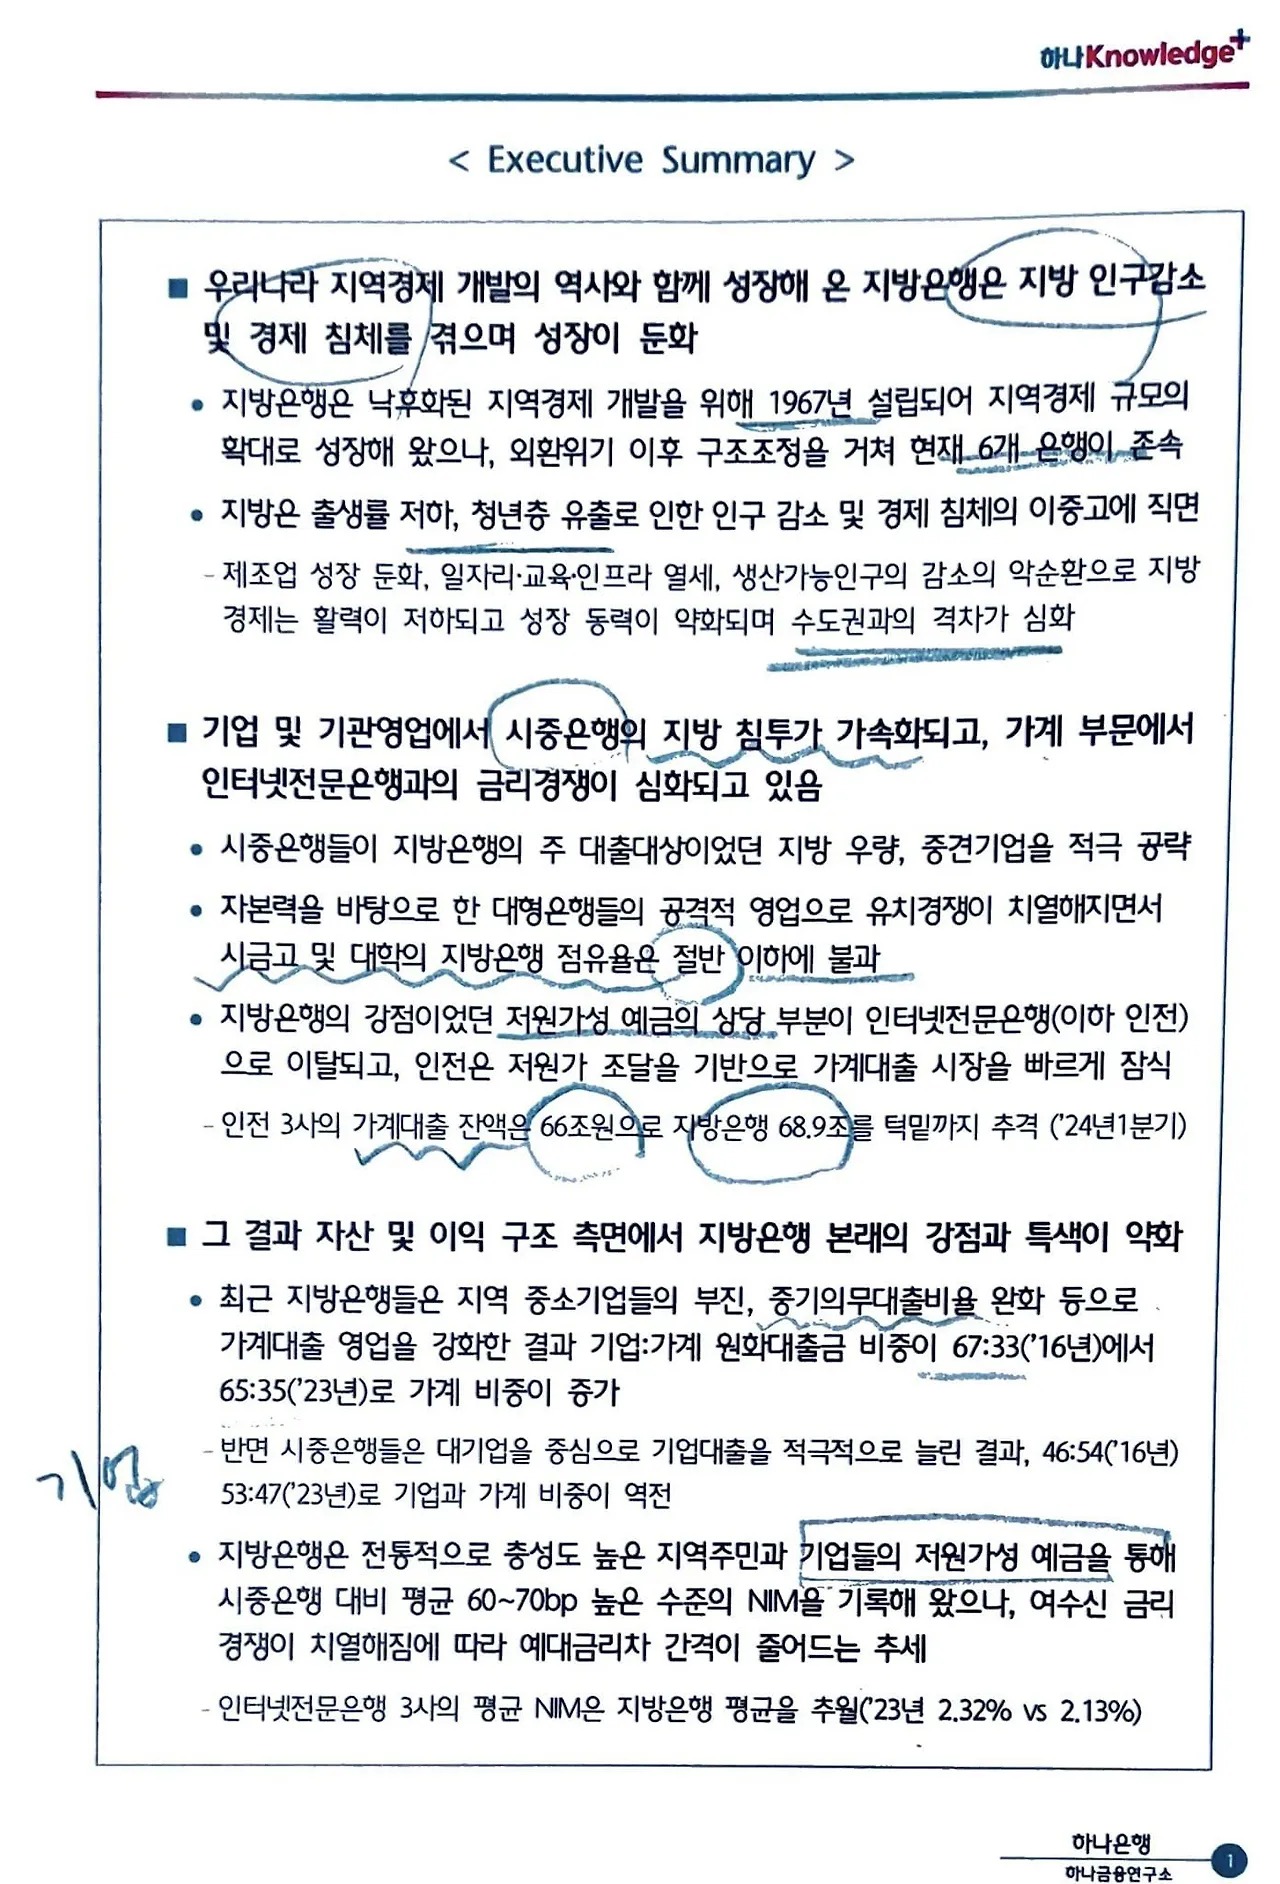 하나Knowledge+
< Executive Summary >
■ 우리나라 지역경제 개발의 역사와 함께 성장해 온 지방은행은 지방 인구감소
및 경제 침체를 겪으며 성장이 둔화
• 지방은행은 낙후화된 지역경제 개발을 위해 1967년 설립되어 지역경제 규모의
확대로 성장해 왔으나, 외환위기 이후 구조조정을 거쳐 현재 6개 은행이 존속
• 지방은 출생률 저하, 청년층 유출로 인한 인구 감소 및 경제 침체의 이중고에 직면
- 제조업 성장 둔화, 일자리·교육·인프라 열세, 생산가능인구의 감소의 악순환으로 지방
경제는 활력이 저하되고 성장 동력이 약화되며 수도권과의 격차가 심화
■ 기업 및 기관영업에서 시중은행의 지방 침투가 가속화되고, 가계 부문에서
인터넷전문은행과의 금리경쟁이 심화되고 있음
• 시중은행들이 지방은행의 주 대출대상이었던 지방 우량, 중견기업을 적극 공략
• 자본력을 바탕으로 한 대형은행들의 공격적 영업으로 유치경쟁이 치열해지면서
시금고 및 대학의 지방은행 점유율은 절반 이하에 불과
• 지방은행의 강점이었던 저원가성 예금의 상당 부분이 인터넷전문은행(이하 인전)
으로 이탈되고, 인전은 저원가 조달을 기반으로 가계대출 시장을 빠르게 잠식
- 인전 3사의 가계대출 잔액은 66조원으로 지방은행 68.9조를 턱밑까지 추격 ('24년1분기)
■ 그 결과 자산 및 이익 구조 측면에서 지방은행 본래의 강점과 특색이 약화
• 최근 지방은행들은 지역 중소기업들의 부진, 중기의무대출비율 완화 등으로
가계대출 영업을 강화한 결과 기업:가계 원화대출금 비중이 67:33('16년)에서
65:35('23년)로 가계 비중이 증가
- 반면 시중은행들은 대기업을 중심으로 기업대출을 적극적으로 늘린 결과, 46:54('16년)
기업
53:47('23년)로 기업과 가계 비중이 역전
• 지방은행은 전통적으로 충성도 높은 지역주민과 기업들의 저원가성 예금을 통해
시중은행 대비 평균 60~70bp 높은 수준의 NIM을 기록해 왔으나, 여수신 금리
경쟁이 치열해짐에 따라 예대금리차 간격이 줄어드는 추세
- 인터넷전문은행 3사의 평균 NIM은 지방은행 평균을 추월('23년 2.32% vs 2.13%)
하나은행
하나금융연구소
1